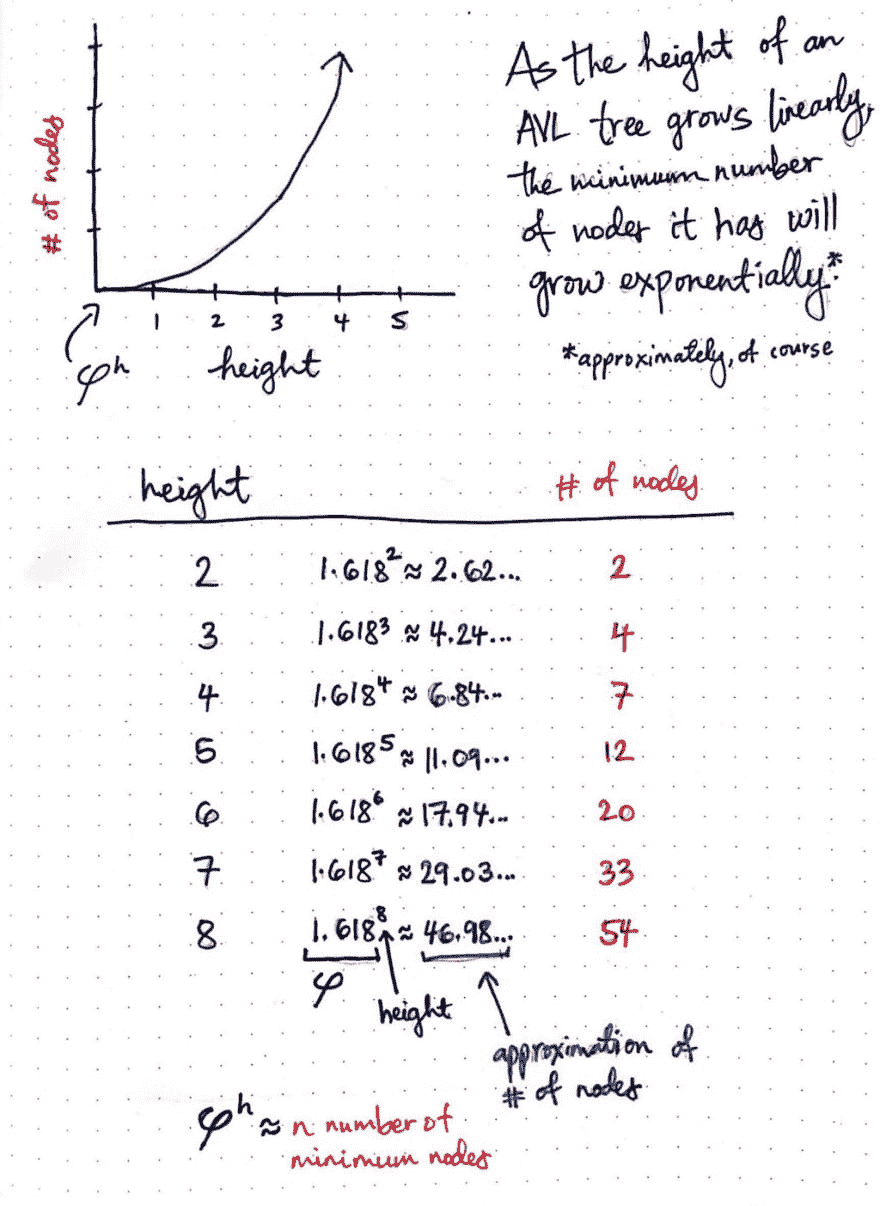 # of nodes
1 2 3 4 5
φʰ
height
As the height of an
AVL tree grows linearly,
the minimum number
of nodes it has will
grow exponentially.*
*approximately, of course
height # of nodes
2 1.618² ≈ 2.62... 2
3 1.618³ ≈ 4.24... 4
4 1.618⁴ ≈ 6.84... 7
5 1.618⁵ ≈ 11.09... 12
6 1.618⁶ ≈ 17.94... 20
7 1.618⁷ ≈ 29.03... 33
8 1.618⁸ ≈ 46.98... 54
φ
height
approximation of
# of nodes
φʰ ≈ n number of
minimum nodes